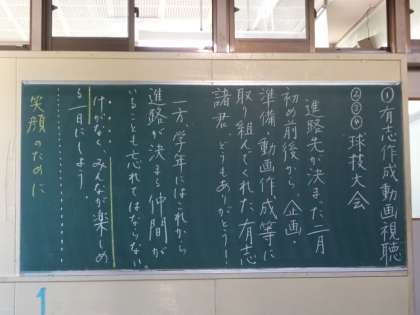 ①有志作成動画視聴
②③④球技大会
進路先が決まった二月
初め前後から、企画・
準備・動画作成等に
取り組んでくれた有志
諸君、どうもありがとう!
一方、学年にはこれから
進路が決まる仲間が
いることも忘れてはならない。
けがなく、みんなが楽しめ
る一日にしよう
笑顔のために
1